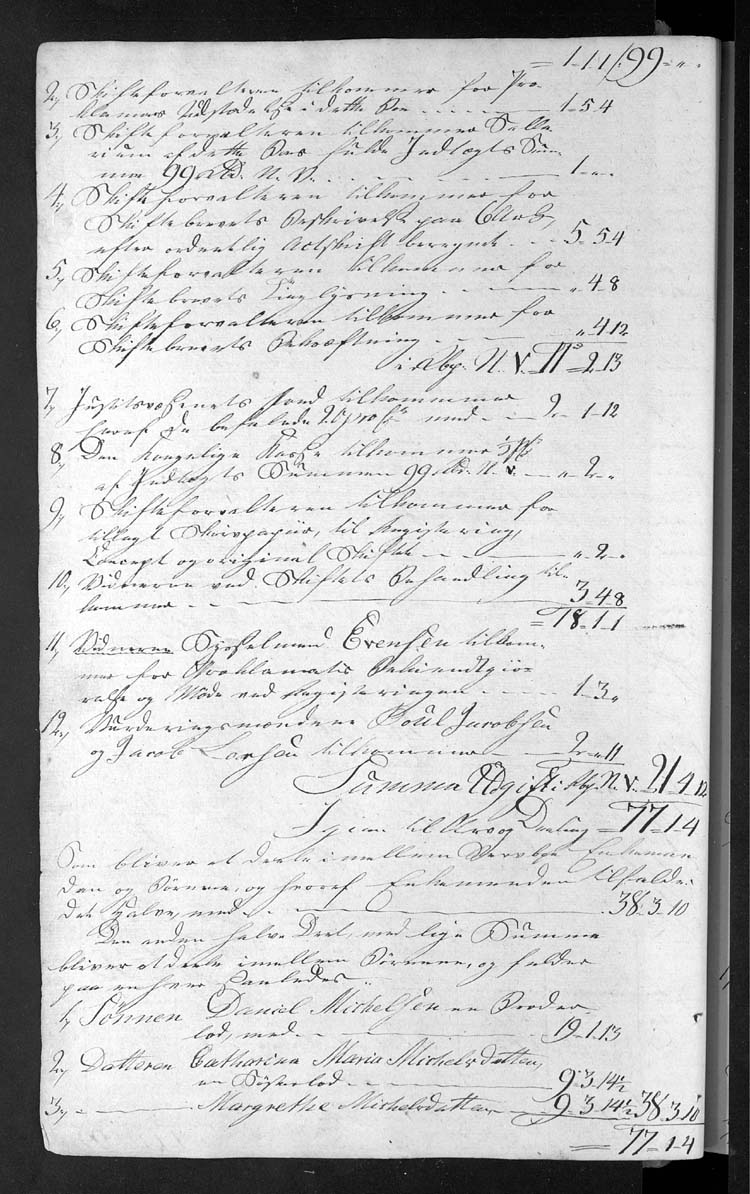 = 1-1 1/. 99 = " .
2, Skifteforvalteren tilkommer for Pro-
klamas Udstedelse i dette Boe . . . . 1-5-4
3, Skifteforvalteren tilkommer Salla-
rium af dette Boes fulde Indtægts Sum-
ma 99 Rd. N. V. . . . 1 - " -
4, Skifteforvalteren tilkommer for
Skiftebrevets Beskrivelse paa 6 Ark,
efter ordentlig Actskrift beregnet . . 5-54
5, Skifteforvalteren tilkommer for
Skiftebrevets Tinglysning . . . " 4-8
6, Skifteforvalteren tilkommer for
Skiftebrevets Bekræftning . . . " 4-12
i Rbp. N. V. 11 = 2-13
7, Justitsvæsenets Fond tilkommer
heraf de befalede 20 pro Ct med . . 2 - 1-12
8, Den Kongelige Kasse tilkommer
af Indtægts Summen 99 Rd. N. V. — " 2 - "
9, Skifteforvalteren tilkommer for
tillagt Skrivpapiir, til Registering,
Concept og original Skifte . . " 2 - "
10, Vidnerne ved Skiftets Behandling til-
kommer . . . 3-48
= 18-1-1
11, Sysselmand Evensen tilkom-
mer for Proklamatis Bekiendtgiö-
relse og Möde ved Registeringen . . 1-3 "
12, Vurderingsmændene Poul Jacobsen
og Jacob Larsen tilkommer — 2 - " 11
Summa Udgift i Rbp. N. V. 21 4 12
Igien til Arv og Deeling = 77 = 1-4
Som bliver at deele imellem Enkeman-
den og Börnene, og hvoraf Enkemanden tilfalder
det halve, med . . . 38-3-10
Den anden halve Deel, med lige Summa
bliver at deele imellem Börnene, og falder
paa enhver saaledes . .
1, Sönnen Daniel Michelsen en Broder-
lod, med . . . 19-1-13
2, Datteren Catharina Maria Michelsdatter,
en Sösterlod . . . 9-3-14½
3, — Margrethe Michelsdatter — 9-3-14½ 38 3 10
= 77 = 1-4